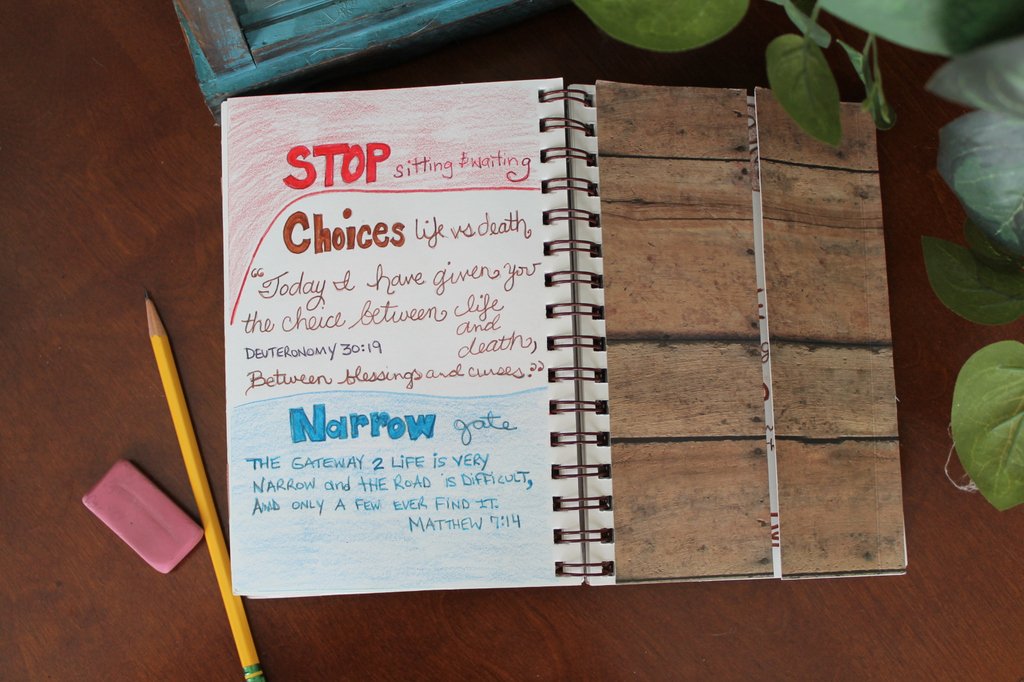 STOP sitting & waiting
Choices life vs death
"Today I have given you
the choice between life
and
DEUTERONOMY 30:19 death,
Between blessings and curses."
Narrow gate
THE GATEWAY 2 LIFE IS VERY
NARROW and THE ROAD IS DIFFICULT,
AND ONLY A FEW EVER FIND IT.
MATTHEW 7:14